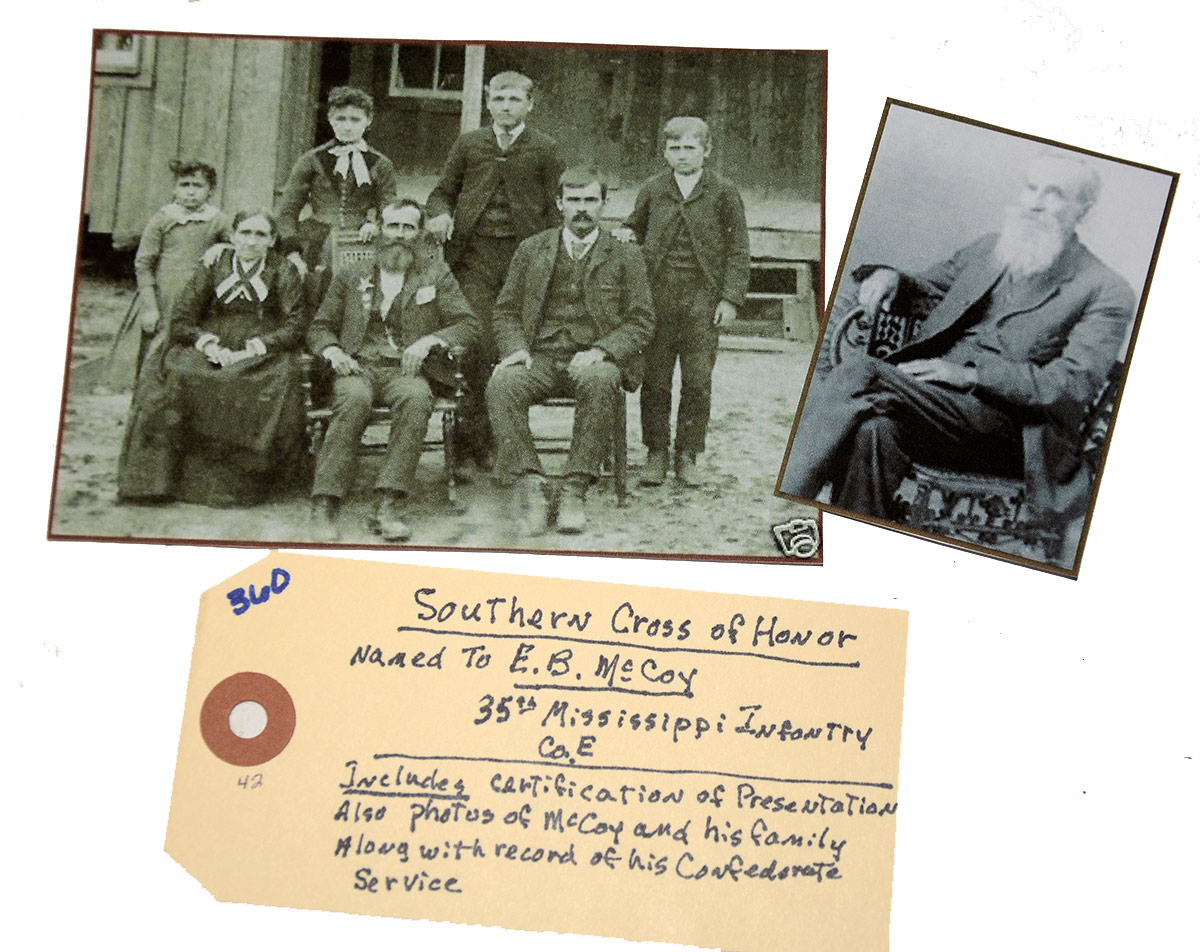 360
Southern Cross of Honor
Named To E.B. McCoy
35th Mississippi Infantry
Co. E
Includes certification of Presentation
Also photos of McCoy and his family
Along with record of his Confederate
Service
42